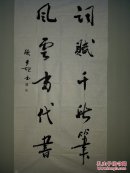 词赋千秋笔
风云当代书